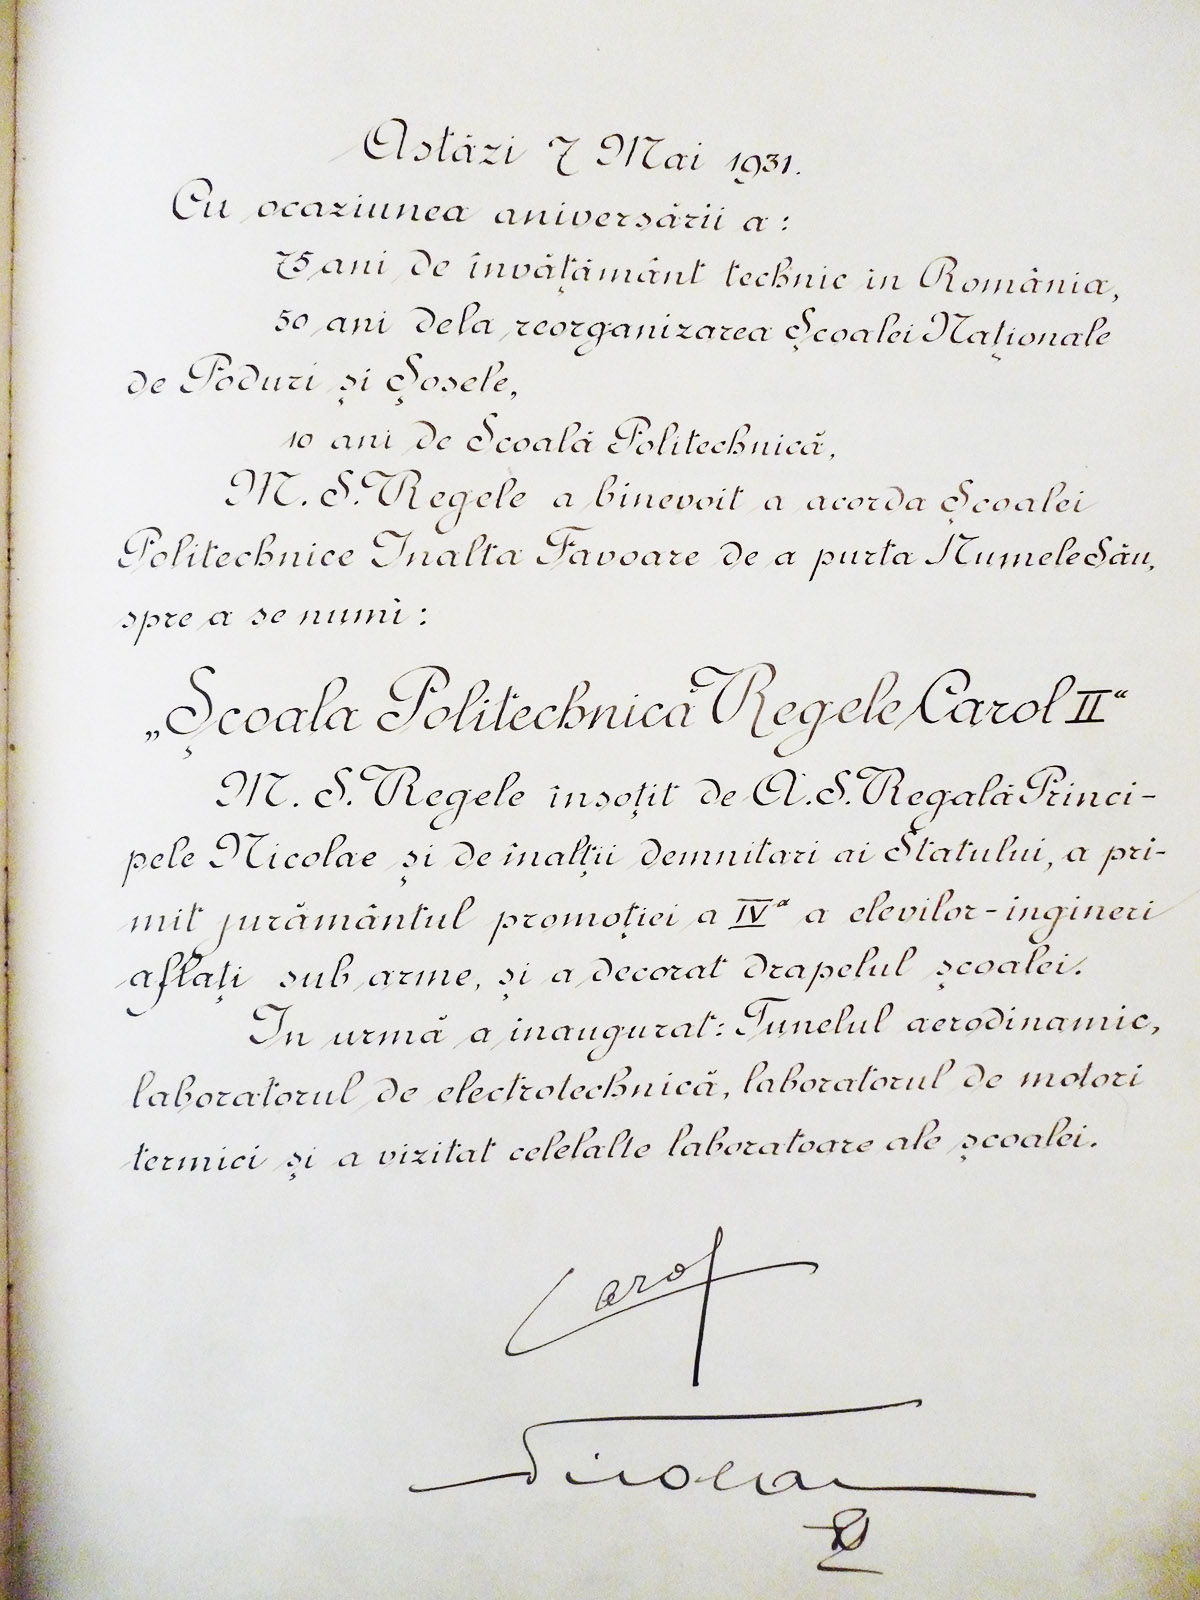 Astăzi 7 Mai 1931.
Cu ocaziunea aniversării a:
75 ani de învățământ technic in România,
50 ani dela reorganizarea Școalei Naționale
de Poduri și Șosele,
10 ani de Scoală Politechnică,
M. S. Regele a binevoit a acorda Școalei
Politechnice Inalta Favoare de a purta Numele Său,
spre a se numi:
„Școala Politechnică Regele Carol II“
M. S. Regele însoțit de A. S. Regală Princi-
pele Nicolae și de înalții demnitari ai Statului, a pri-
mit jurământul promoției a IVa a elevilor-ingineri
aflați sub arme, și a decorat drapelul școalei.
In urmă a inaugurat: Tunelul aerodinamic,
laboratorul de electrotechnică, laboratorul de motori
termici și a vizitat celelalte laboratoare ale școalei.
Carol
Nicolae